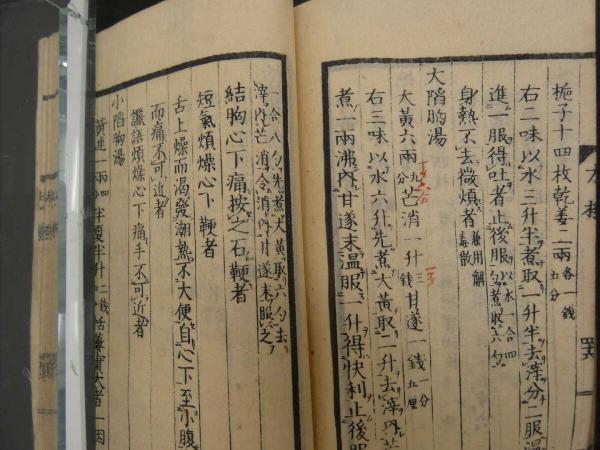 梔子十四枚乾姜二兩各一錢五分
右二味以水三升半煮取一升半去滓分二服温
進一服得吐者止後服以水一合四勺煮取六勺
身熱不去微煩者兼用解毒散
大陷胸湯
大黃六兩九分芒消一升三錢甘遂一錢一分五厘
右三味以水六升先煮大黃取二升去滓內芒
煮一兩沸內甘遂末温服一升得快利止後服
一合八勺先煮大黃取六勺去
滓內芒消令消內甘遂末服之
結胸心下痛按之石鞕者
短氣煩燥心下鞕者
舌上燥而渴發潮熱不大便自心下至小腹
而痛不可近者
讝語煩燥心下痛手不可近者
小陷胸湯
黃連一兩四分半夏半升二錢栝蔞實大者一箇